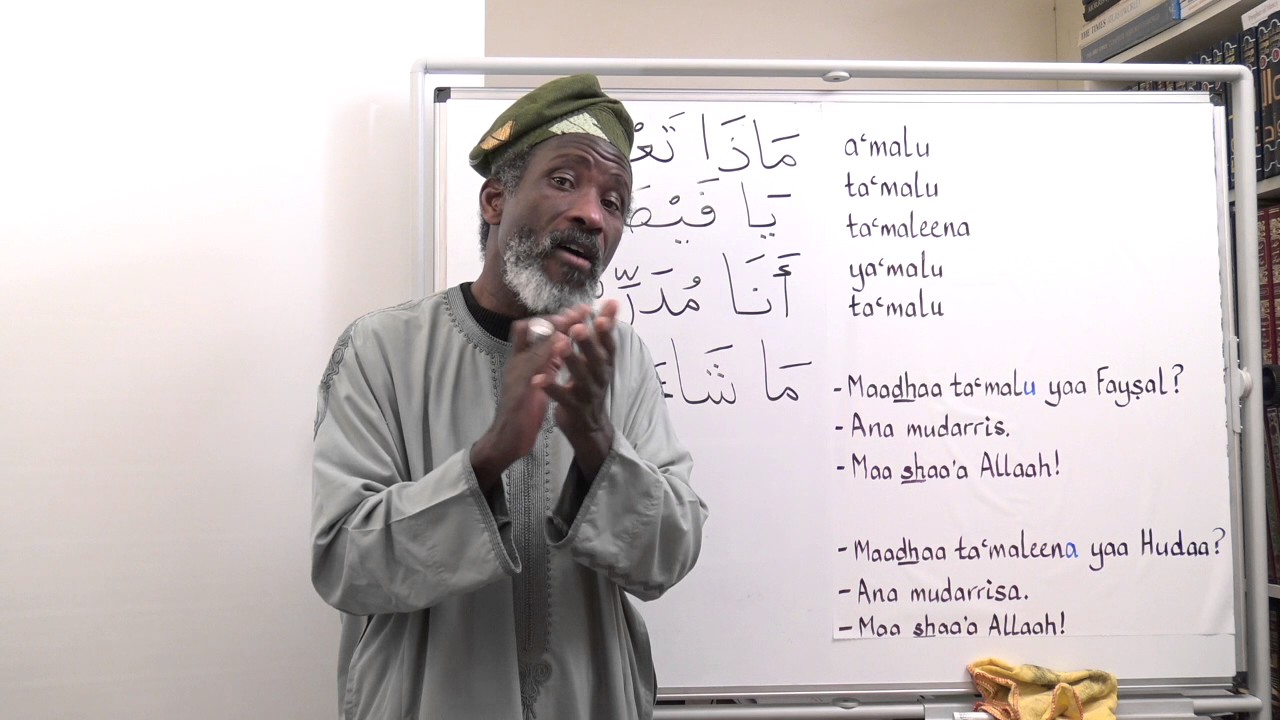 مَاذَا
يَا
أَنَا
مَا شَاءَ
aʿmalu
taʿmalu
taʿmaleena
yaʿmalu
taʿmalu
- Maadhaa taʿmalu yaa Fayṣal?
- Ana mudarris.
- Maa shaa'a Allaah!
- Maadhaa taʿmaleena yaa Hudaa?
- Ana mudarrisa.
- Maa shaa'a Allaah!
THE TIMES